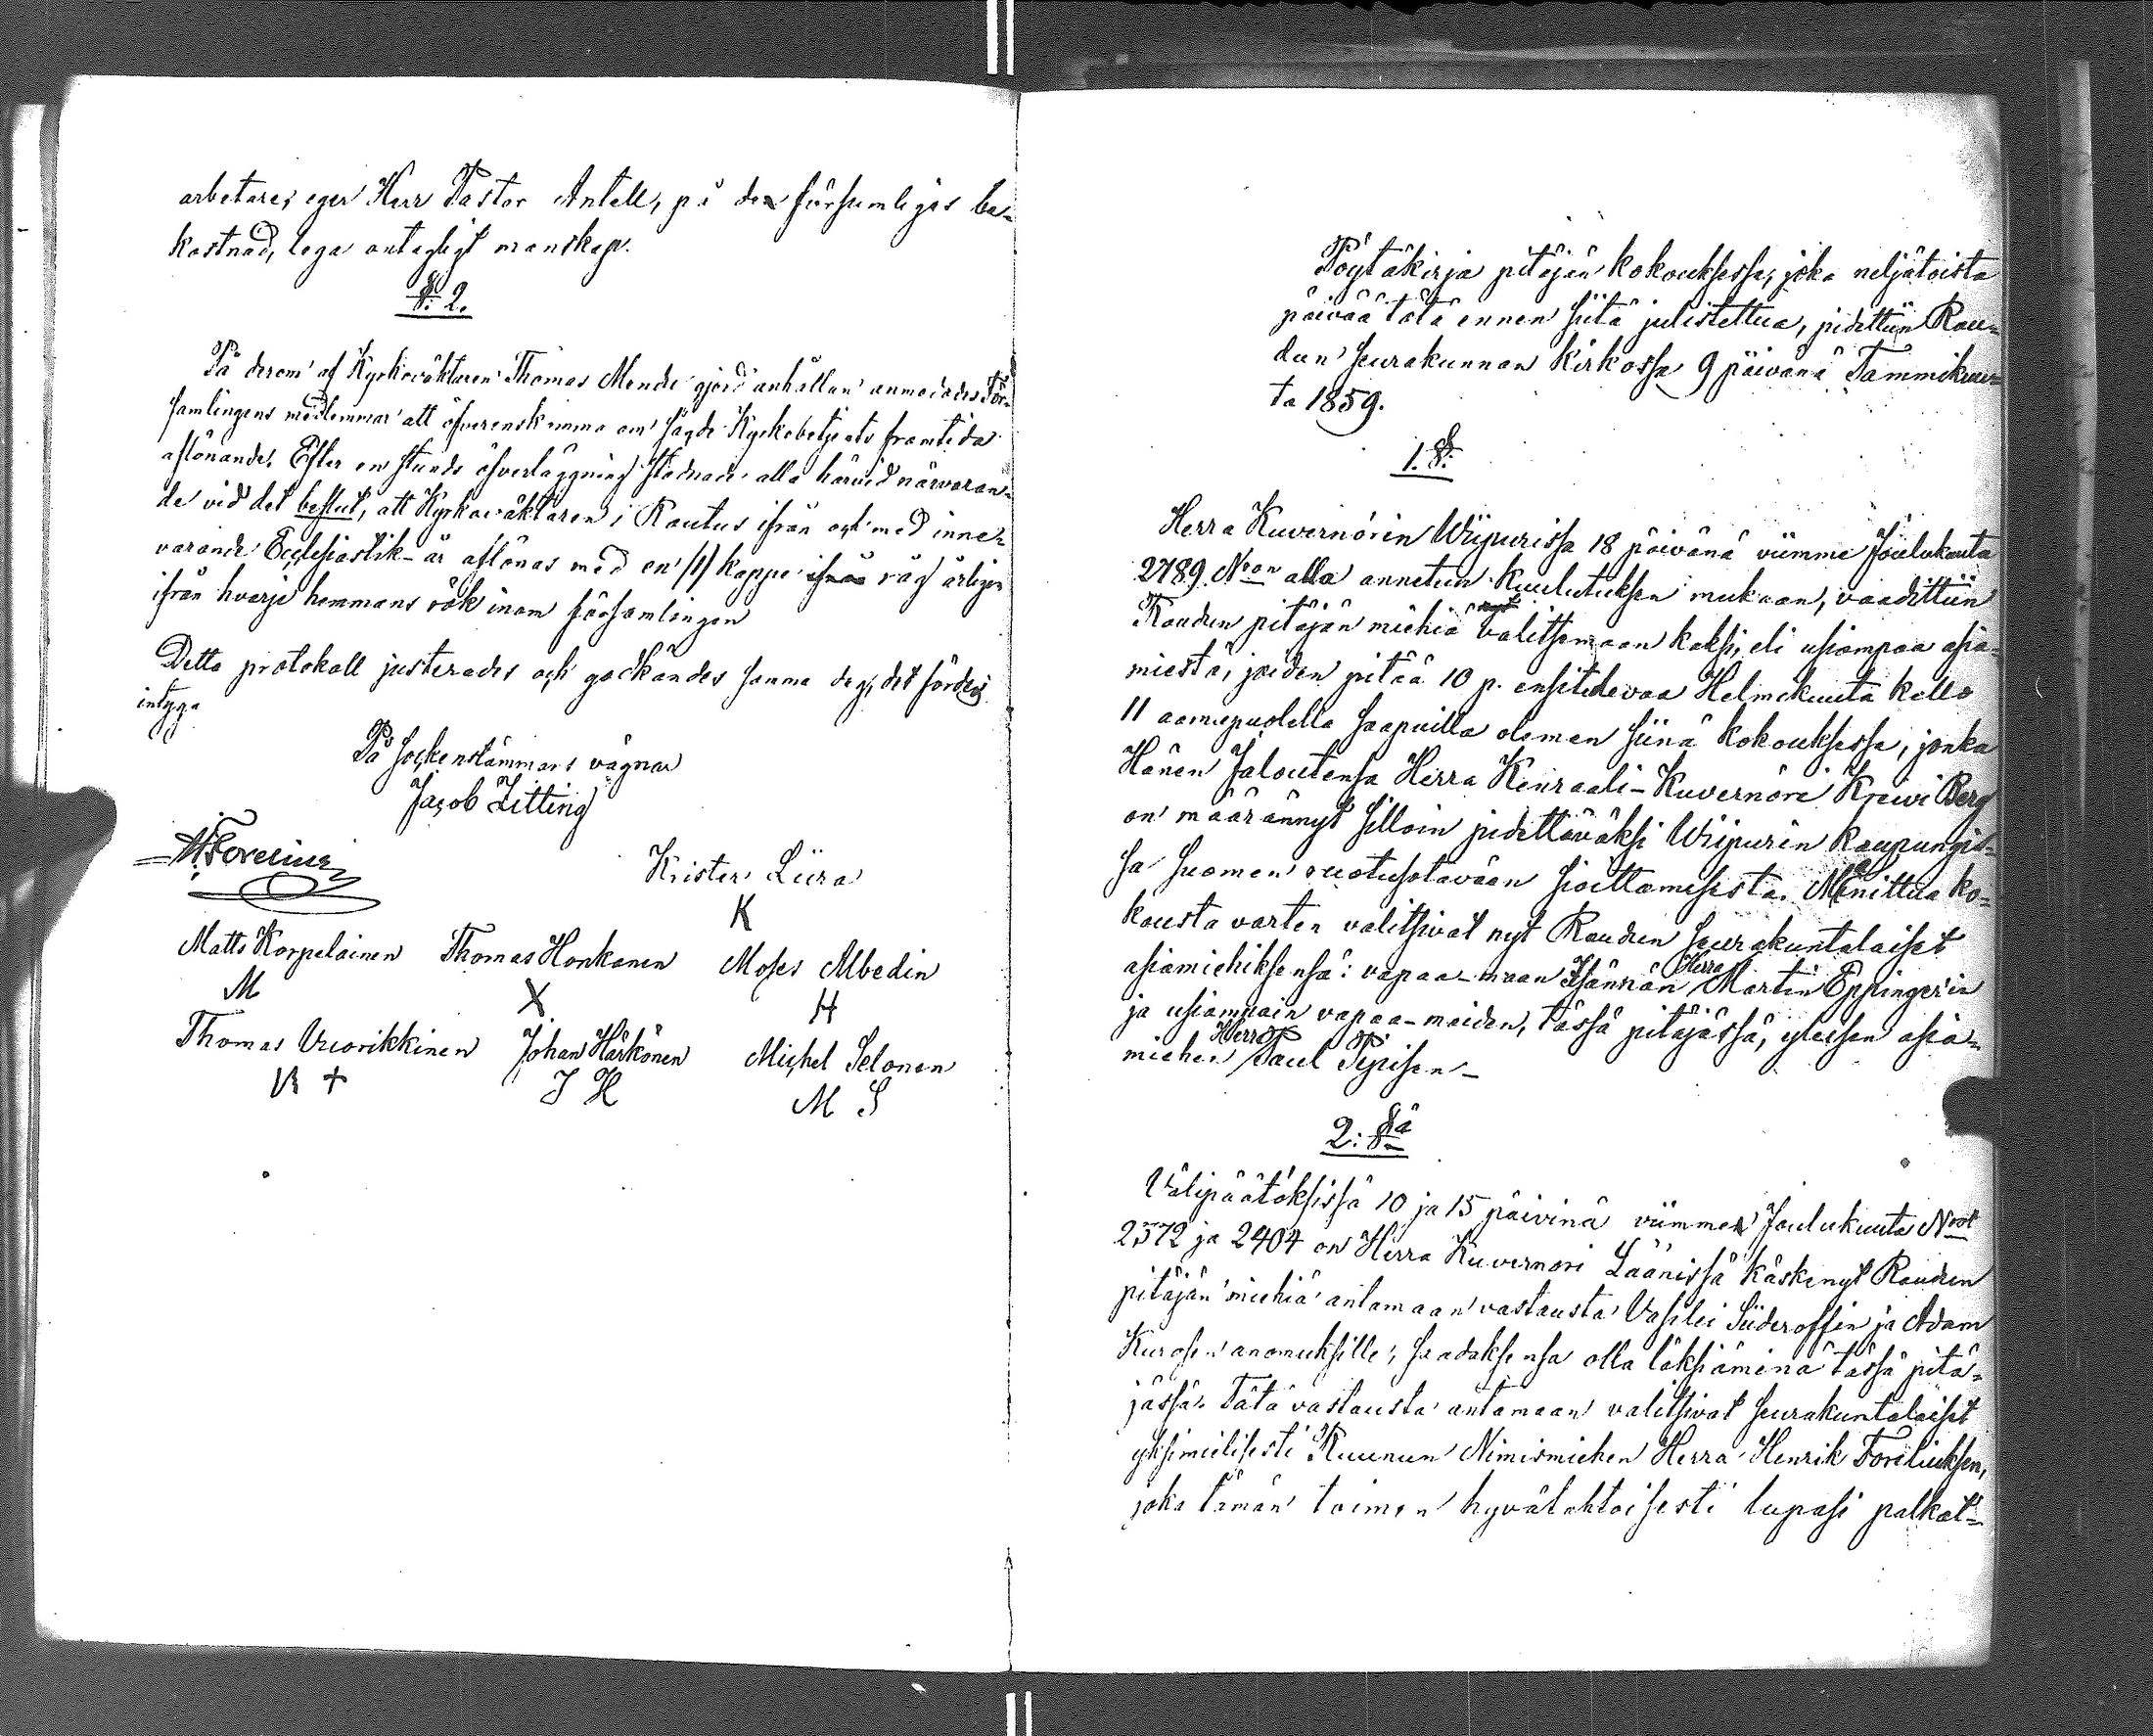 arbetare, eger Herr Pastor Antell, på den försumliges be-
kostnad, lega antagligt manskap.
§: 2.
På derom af Kyrkoväktaren Thomas Mende gjord anhållan anmodades För-
samlingens medlemmar att öfverenskomma om sagde Kyrkobetjents framtida
aflönande. Efter en stunds öfverläggning stadnade alla härvid närvaran-
de vid det beslut, att Kyrkoväktaren i Rautus ifrån och med inne-
varande Ecclesiastik-år aflönas med en /1/ kappe råg årligen
ifrån hvarje hemmans rök inom församlingen
Detta protokoll justerades och godkändes samma dag, det fördes,
intyga
På Sockenstämmans vägnar
Jacob Zitting
HForelius
Krister Liira
K
Matts Korpelainen Thomas Honkanen Moses Albedin
M X H
Thomas Vuorikkinen Johan Härkönen Michel Selonen
V + J H M S
Pöytäkirja pitäjän kokouksessa, joka neljätoista
päivää tätä ennen siitä julistettua, pidettiin Rau-
dun seurakunnan kirkossa 9 päivänä Tammikuu-
ta 1859.
1. §:
Herra Kuvernörin Wiipurissa 18 päivänä viimme Joulukuuta
2789 N:on alla annetun kuulutuksen mukaan, vaadittiin
Raudun pitäjän miehiä nyt valitsemaan kaksi, eli usiampaa asia-
miestä, joiden pitää 10 p. ensitulevaa Helmikuuta kello
11 aamupuolella saapuilla oleman siinä kokouksessa, jonka
Hänen Jaloutensa Herra Kenraali-Kuvernöri Kreivi Berg
on määrännyt silloin pidettäväksi Wiipurin kaupungis-
sa Suomen ruotusotaväen sioittamisesta. Mainittua ko-
kousta varten valitsivat nyt Raudun seurakuntalaiset
asiamiehiksensä: vapaa-maan Isännän Herra Martin Eppingerin
ja usiampain vapaa-maiden, tässä pitäjässä, yleisen asia-
miehen Herra Paul Pipisen_
2: §ä
Välipäätöksissä 10 ja 15 päivinä viimmen Joulukuuta N:rot
2372 ja 2404 on Herra Kuvernöri Läänissä käskenyt Raudun
pitäjän miehiä antamaan vastausta Vasilei Siideroffin ja Adam
Kurosen anomuksille, saadaksensa olla läksiäminä tässä pitä-
jässä. Tätä vastausta antamaan valitsivat seurakuntalaiset
yksimielisesti Kruunun Nimismiehen Herra Henrik Foreliuksen,
joka tämän toimen hyväntahtoisesti lupasi palkat-